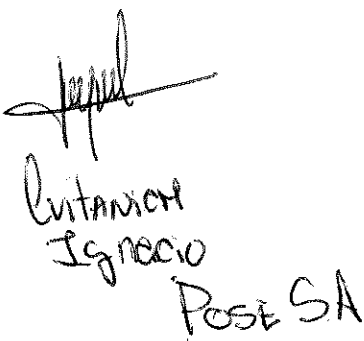 Cvitanich
Ignacio
Pose SA